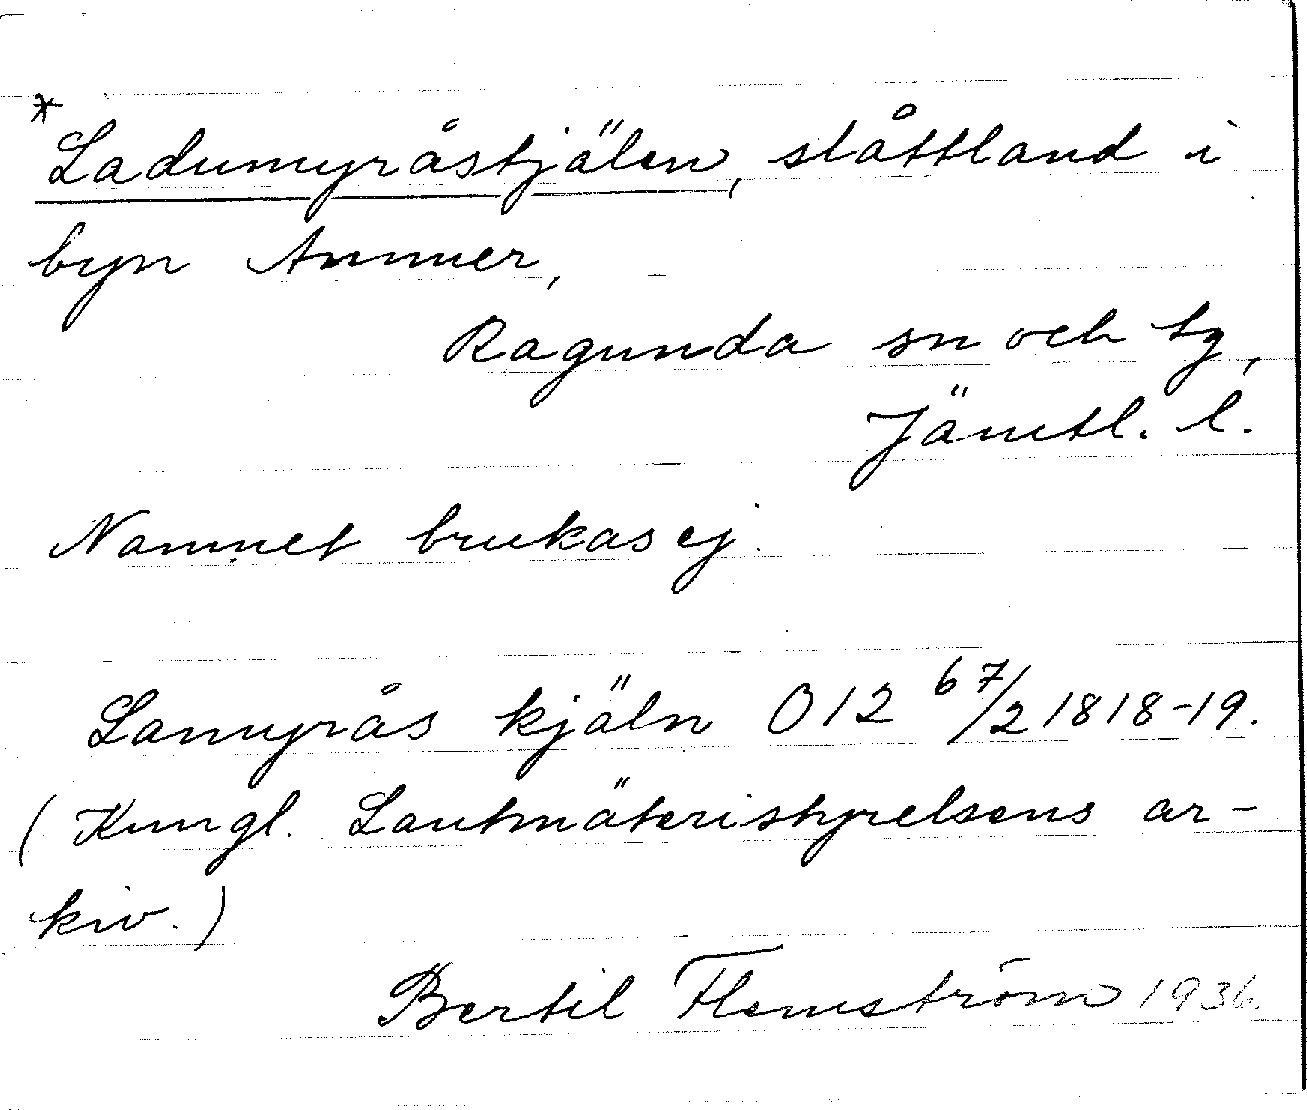 * Ladumyråstjälen, slåttland i
byn Ammer,
Ragunda sn och tg,
Jämtl. l.
Namnet brukas ej.
Lamyrås kjäln O12 67/2 1818-19.
(Kungl. Lantmäteristyrelsens ar-
kiv.)
Bertil Flemström 1936.